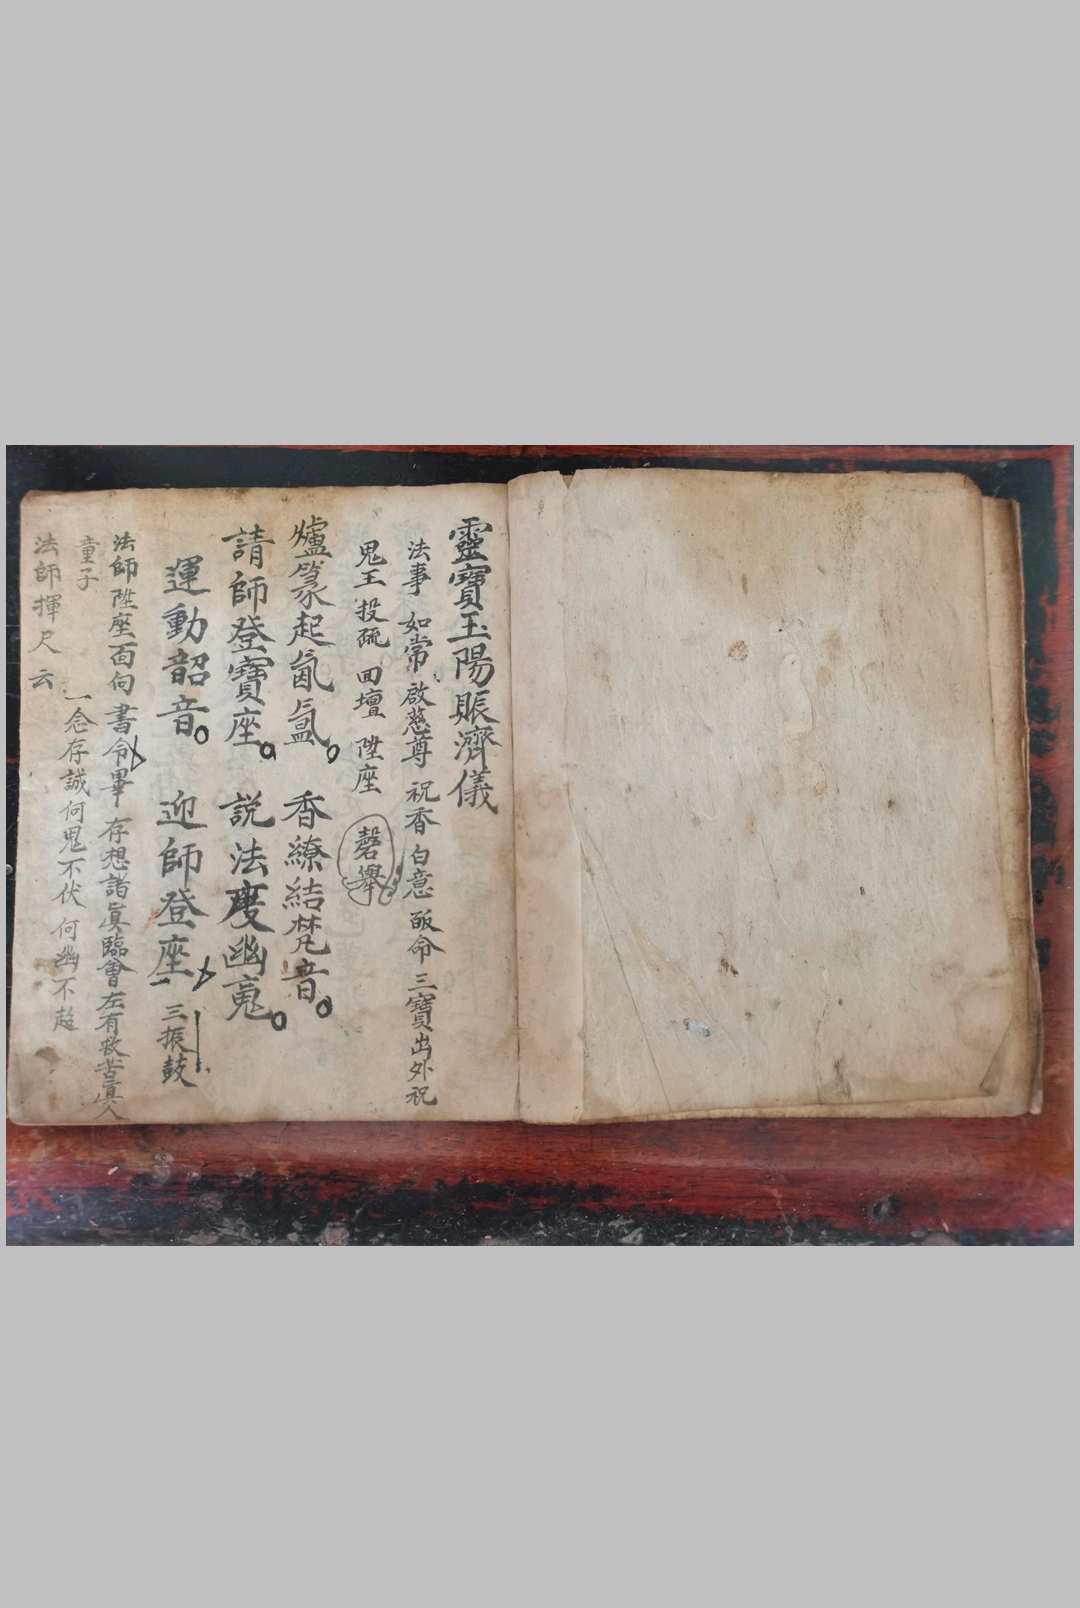 靈寶玉陽賑濟儀
法事 如常 啟慈尊 祝香 白意 皈命 三寶出外祝
鬼王投疏 回壇 陞座 磬舉
爐篆起氤氳。 香繚結梵音。
請師登寶座。 説法度幽䰟。
運動韶音。 迎師登座 三振鼓
法師陞座面向書令畢 存想諸眞臨會左有救苦眞人
童子 一念存誠何鬼不伏 何幽不超
法師揮尺云